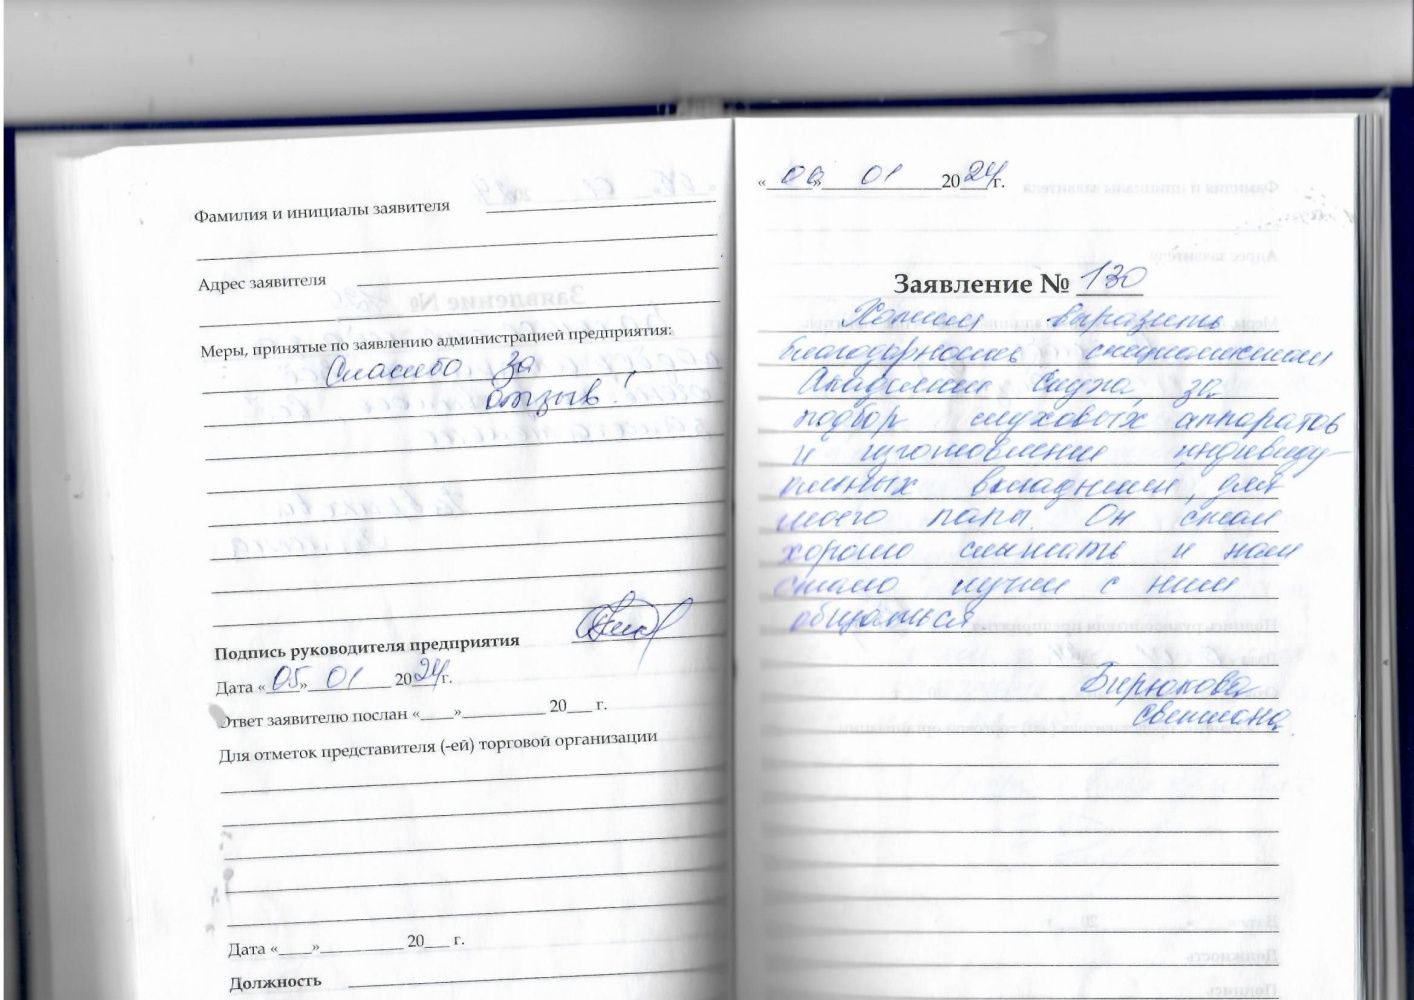 Фамилия и инициалы заявителя
Адрес заявителя
Меры, принятые по заявлению администрацией предприятия:
Спасибо за
отзыв!
Подпись руководителя предприятия
Дата «05» 01 2024 г.
Ответ заявителю послан «____»__________ 20___ г.
Для отметок представителя (-ей) торговой организации
Дата «____»__________ 20___ г.
Должность
«09» 01 2024 г.
Заявление № 130
Хотим выразить
благодарность специалистам
Академии Слуха, за
подбор слуховых аппаратов
и изготовление индивиду-
альных вкладышей, для
моего папы. Он стал
хорошо слышать и нам
стало лучше с ним
общаться
Бирюкова
Светлана.